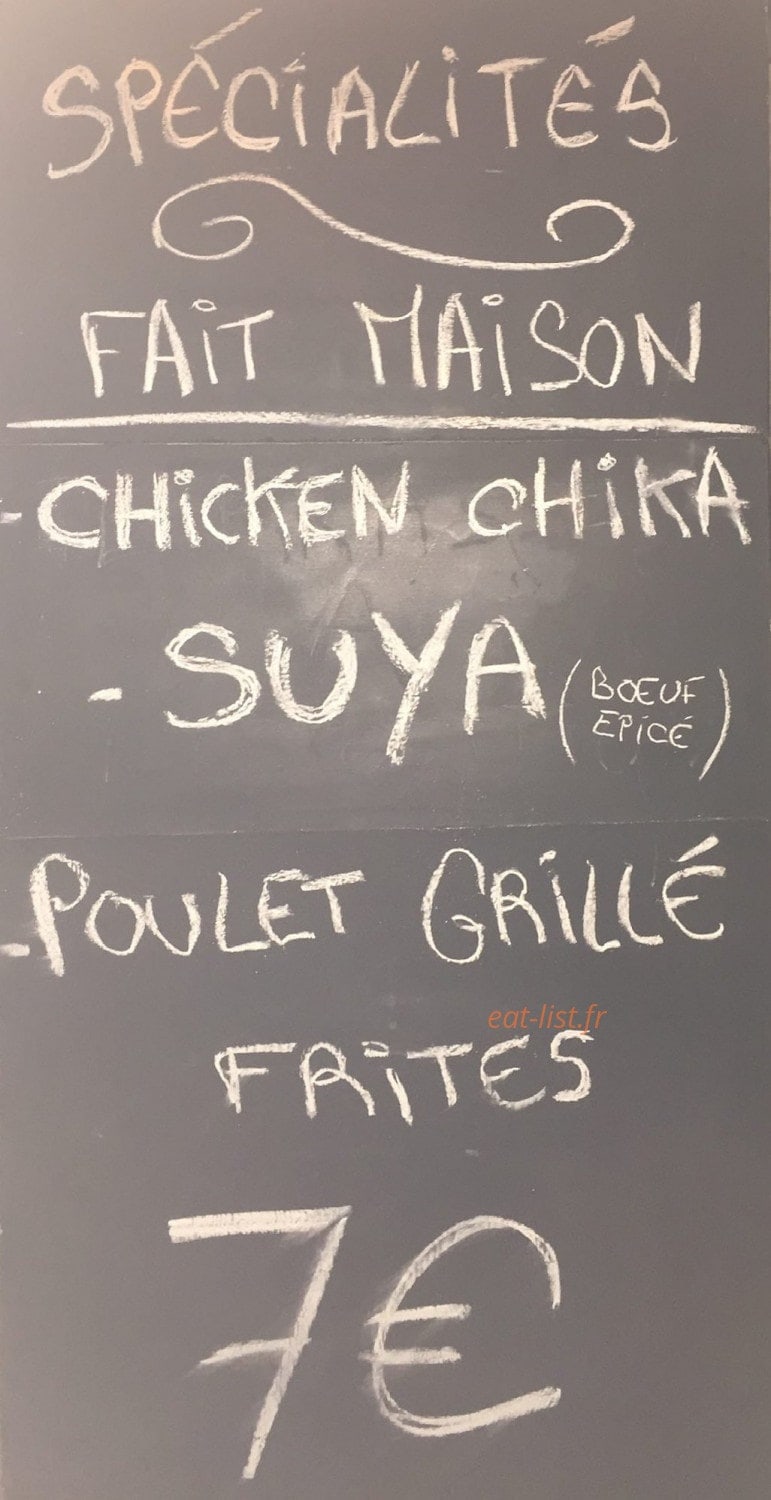 SPÉCIALITÉS
FAIT MAISON
- CHICKEN CHIKA
- SUYA (BOEUF
EPICÉ)
- POULET GRILLÉ
eat-list.fr
FRITES
7€